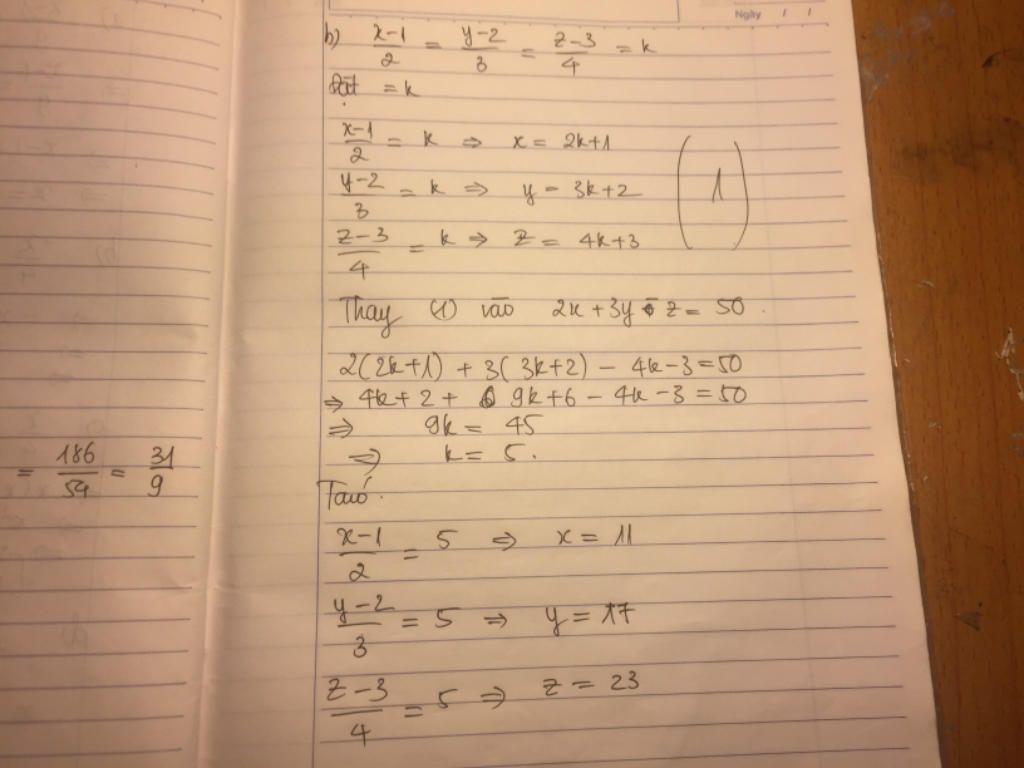 Ngày / /
b) x-1/2 = y-2/3 = z-3/4 = k
Đặt = k
x-1/2 = k ⇒ x = 2k+1
y-2/3 = k ⇒ y = 3k+2 (1)
z-3/4 = k ⇒ z = 4k+3
Thay (1) vào 2x + 3y - z = 50.
2(2k+1) + 3(3k+2) - 4k-3 = 50
⇒ 4k+2+ 9k+6 - 4k-3 = 50
⇒ 9k = 45
⇒ k = 5.
= 186/54 = 31/9
Ta có:
x-1/2 = 5 ⇒ x = 11
y-2/3 = 5 ⇒ y = 17
z-3/4 = 5 ⇒ z = 23